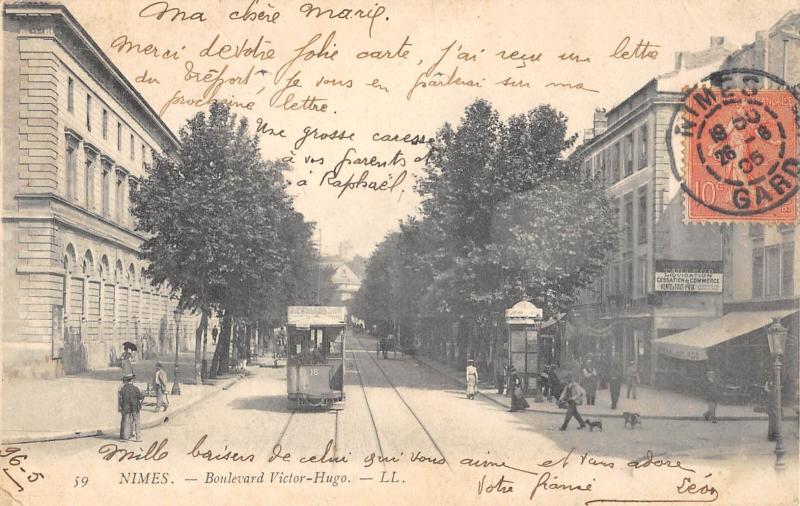 Ma chère Marie.
Merci de votre jolie carte, j'ai reçu une lettre
du Tréport, je vous en parlerai sur ma
prochaine lettre.
Une grosse caresse
à vos parents et
à Raphaël,
NIMES
GARD
10c
LIQUIDATION
CESSATION de COMMERCE
VENTE à TOUT PRIX
16
Mille baisers de celui qui vous aime et vous adore
Votre fiancé Léon
59 NIMES. — Boulevard Victor-Hugo. — LL.